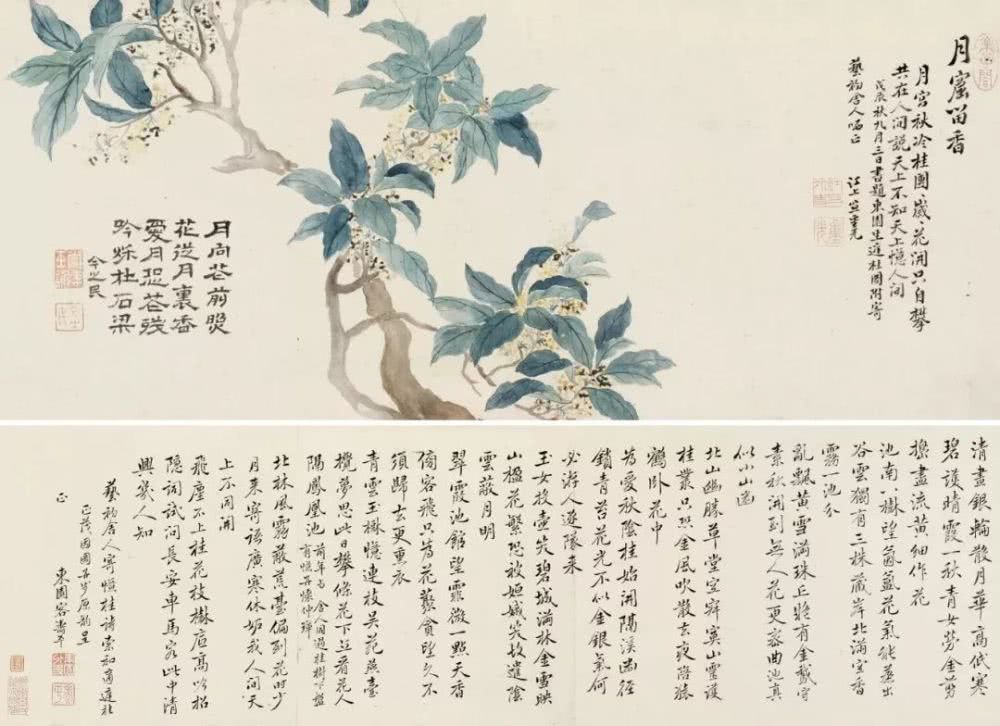 月窟留香
月宮秋冷桂團、歲、花開只自攀
共在人间說天上不知天上憶人间
戊辰秋九月三日書題東園生過桂圖附寄
藝初舍人 正 江上笪重光
月向花前
花從月裏香
愛月恐花殘
吟 杜石梁
今之民
清晝銀輪散月華高低寒
碧護晴霞一秋青女勞金剪
盡流黃細作花
池南一樹望氤氲花氣能蒸出
谷雲獨有三株藏岸北滿 香
霧池分
亂飄黄雪滿珠丘將有金 守
素秋開到無人花更密曲池真
似小山幽
北山幽勝草堂空寂寞山靈護
桂叢只恐金風吹散去夜隨
鶴卧花中
為愛秋陰桂始開隔溪幽徑
鎖青苔花光不似金銀氣何
必游人逐隊來
玉女投壺笑碧城滿林金雪映
山楹花繁恐被姮娥笑故遣陰
雲蔽月明
翠霞池館望雲微一點天香
傍客飛只為花叢貪坐久不
須歸去更熏衣
青雲玉樹憶連枝吴苑燕臺
攬夢思此日攀條花下立看花人
隔鳳凰池 前年 舍人同過桂樹下盤
北林風露散高臺偏到花時少
月來寄語廣寒休妒我人間天
上不同開
飛塵不上桂花枝樹底高吟招
隱詞試问長安車馬客此中清
興幾人知
藝初舍人寄懷桂詩索和適過社
園 原韵呈
正
東園客壽平